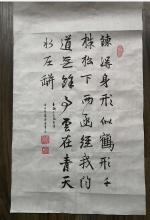 鍊得身形似鶴形千
株松下兩函經我的
道無餘事雲在青天
水在缾